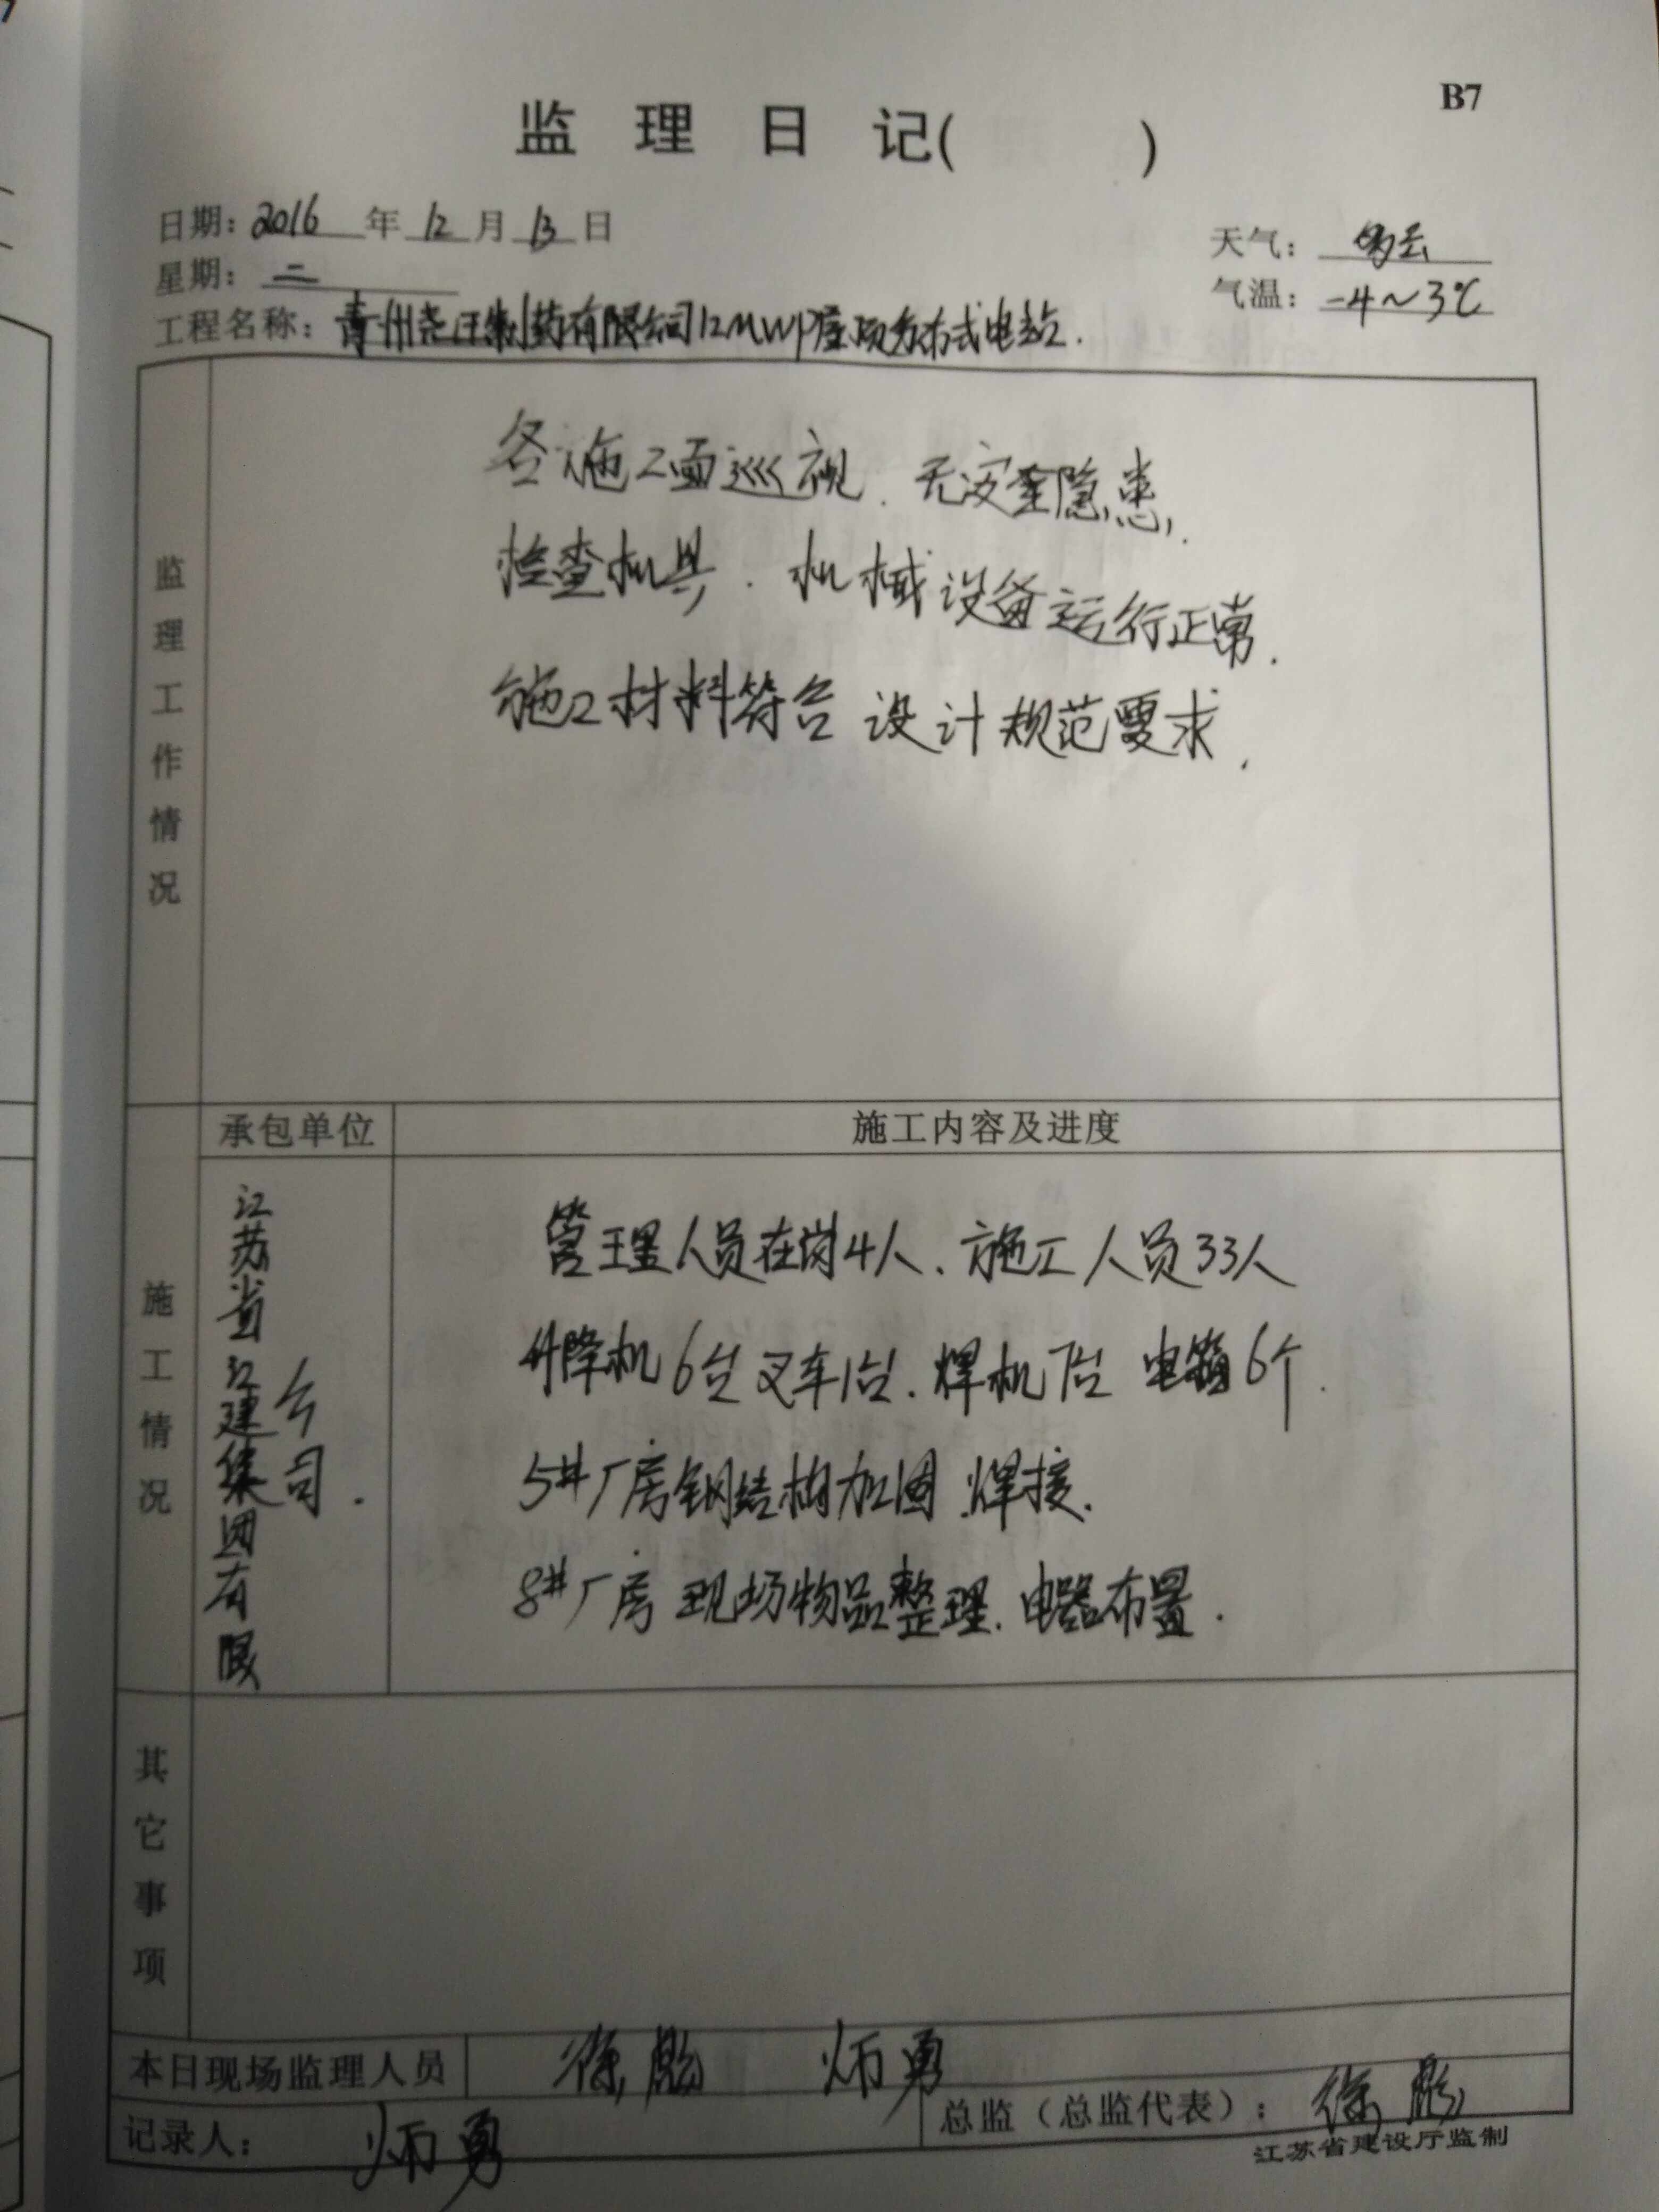 B7
监理日记( )
日期: 2016 年 12 月 13 日
天气: 多云
星期: 二
气温: -4~3℃
工程名称: 青州尧王制药有限公司12MWP屋顶分布式电站.
监理工作情况
各施工面巡视. 无安全隐患.
检查机具. 机械设备运行正常.
施工材料符合设计规范要求.
承包单位
施工内容及进度
施工情况
江苏省江建集团有限
公司.
管理人员在岗4人、施工人员33人
升降机6台 叉车1台. 焊机7台 电箱6个.
5#厂房钢结构加固.焊接.
8#厂房现场物品整理.电器布置.
其它事项
本日现场监理人员 徐彪 炳勇
记录人: 炳勇
总监（总监代表）: 徐彪
江苏省建设厅监制